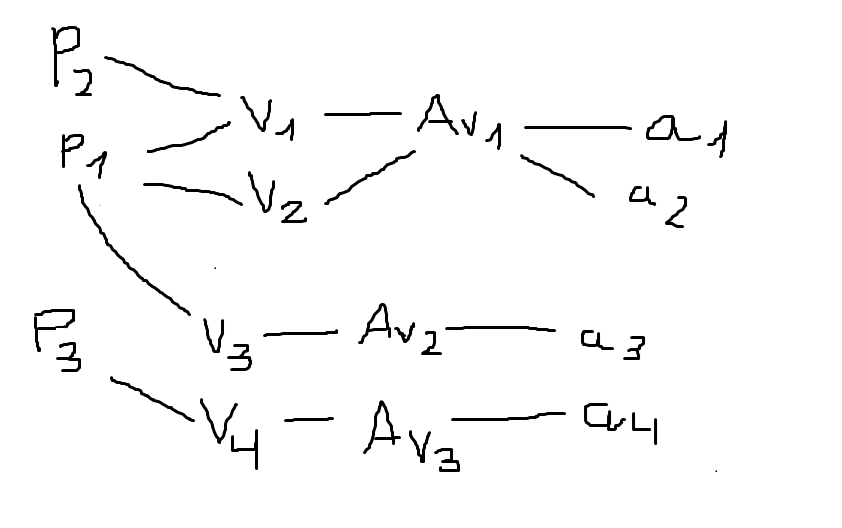 P2
V1 Av1 a1
P1
V2 a2
P3 V3 Av2 a3
V4 Av3 a4